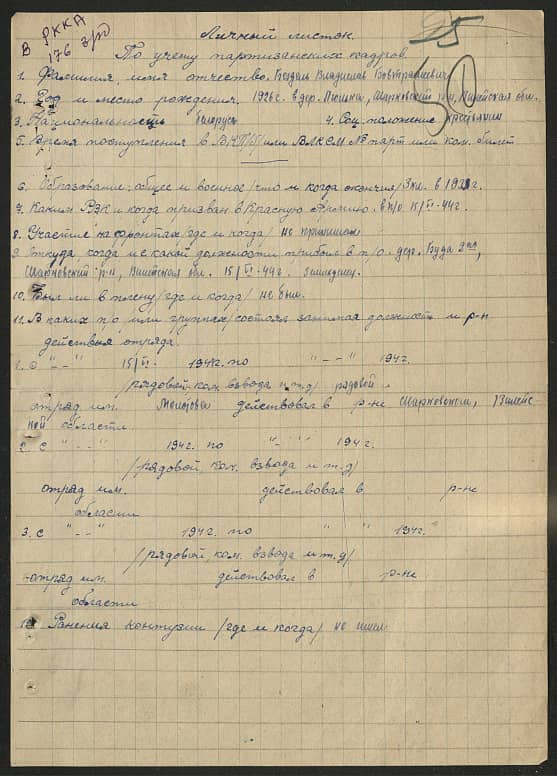 В РККА
176 зрд
Личный листок
По учету партизанских кадров.
1. Фамилия, имя отчество. Владислав
2. Год и место рождения. 1926 г. в дер. Шарковский р-н, Вилейская обл.
3. Национальность белорус 4. Соц. положение крестьянин
5. Время поступления в ВКП/б/ или ВЛКСМ № парт или ком. билет
6. Образование: общее и военное /что и когда окончил/ 3 кл. в г.
7. Каким РВК и когда призван в Красную Армию. в п/о 15/VI-44 г.
8. Участие на фронтах /где и когда/ не принимал
9. Откуда, когда и с какой должности прибыл в п/о. дер. Буда
Шарковский р-н, Вилейская обл. 15/VI-44 г.
10. Был ли в плену /где и когда/ не был.
11. В каких п/о, или группах/состоял занимая должность и р-н
действия отряда.
1. С " - - " 15/VI 194 г. по " - - " 194 г.
/рядовой, ком. взвода и т.д/ рядовой
отряд им. Молотова действовал в р-не Шарковском, Вилейс-
кой области
2. с " - - " 194 г. по " - " 194 г.
/рядовой, ком. взвода и т.д/
отряд им. действовал в р-не
области
3. с " - - " 194 г. по " " 194 г.
/рядовой, ком. взвода и т.д/
отряд им. действовал в р-не
области
12. Ранения контузии /где и когда/ не имел